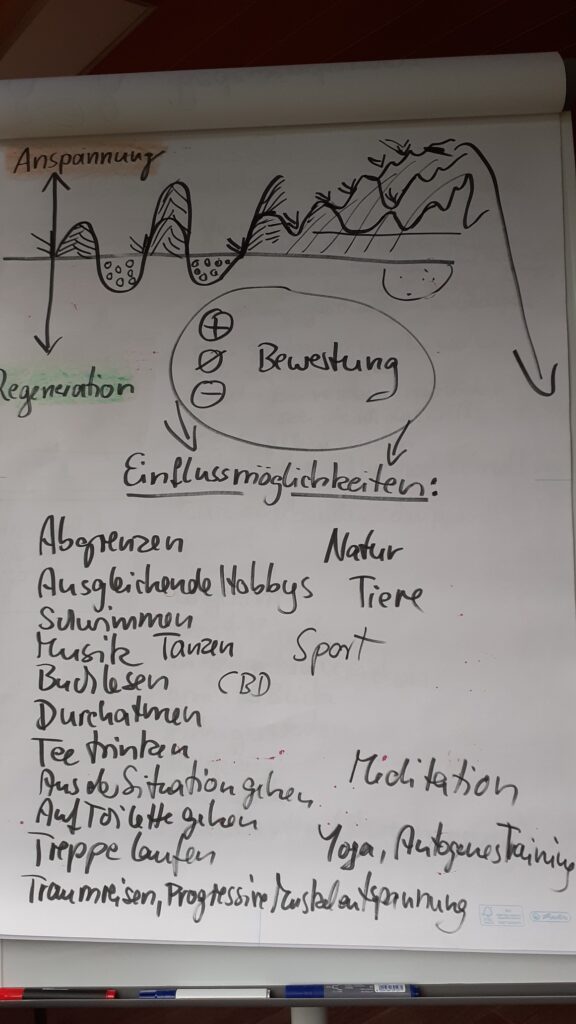 Anspannung
Regeneration
⊕
Ø Bewertung
⊖
Einflussmöglichkeiten:
Abgrenzen Natur
Ausgleichende Hobbys Tiere
Schwimmen
Musik Tanzen Sport
Buch lesen CBD
Durchatmen
Tee trinken
Aus der Situation gehen Meditation
Auf Toilette gehen
Treppe laufen Yoga, Autogenes Training
Traumreisen, Progressive Muskelentspannung